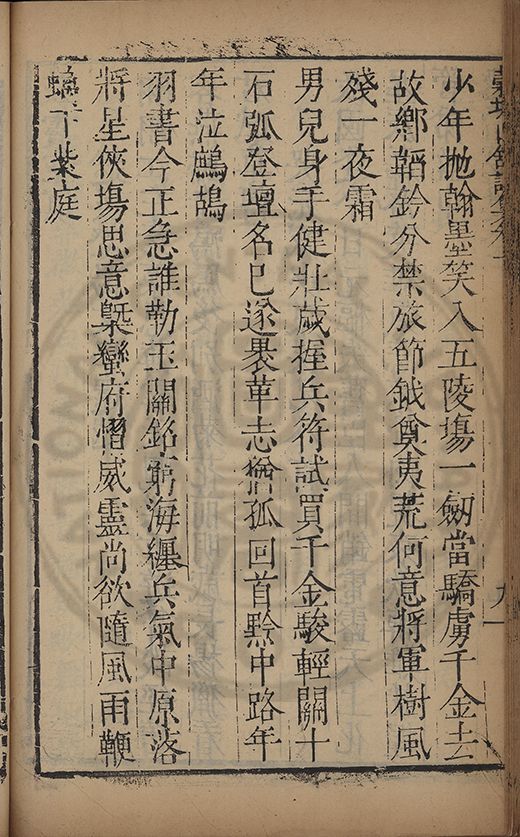 少年拋翰墨笑入五陵塲一劒當驕虜千金去
故鄉韜鈐分禁旅節鉞奠夷荒何意將軍樹風
殘一夜霜
男兒身手健壯歲握兵符試買千金駿輕關十
石弧登壇名已遂褁革志猶孤回首黔中路年
年泣鷓鴣
羽書今正急誰勒玉關銘窮海纏兵氣中原落
將星俠塲思意槩蠻府慴威靈尚欲隨風雨鞭
下紫庭